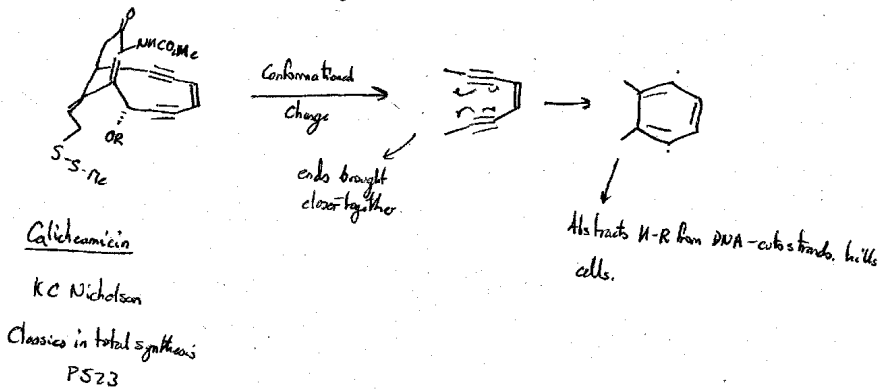 O
NHCO₂Me
OR
S-S-Me
Conformational
change
ends brought
closer together
Abstracts H-R from DNA - cuts strands. kills
cells.
Calicheamicin
KC Nicholson
Classics in total synthesis
P523